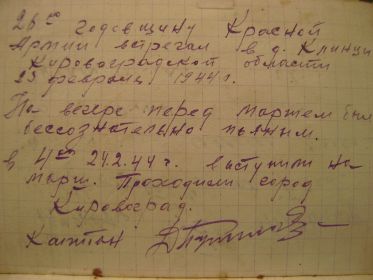 26ю годовщину Красной
Армии встречал в д. Клинцы
Кировоградской области
23 февраля 1944 г.
На вечере перед маршем был
бессознательно пьяным.
в 4 00 24.2.44 г. выступили на
марш. Проходили город
Кировоград.
Капитан